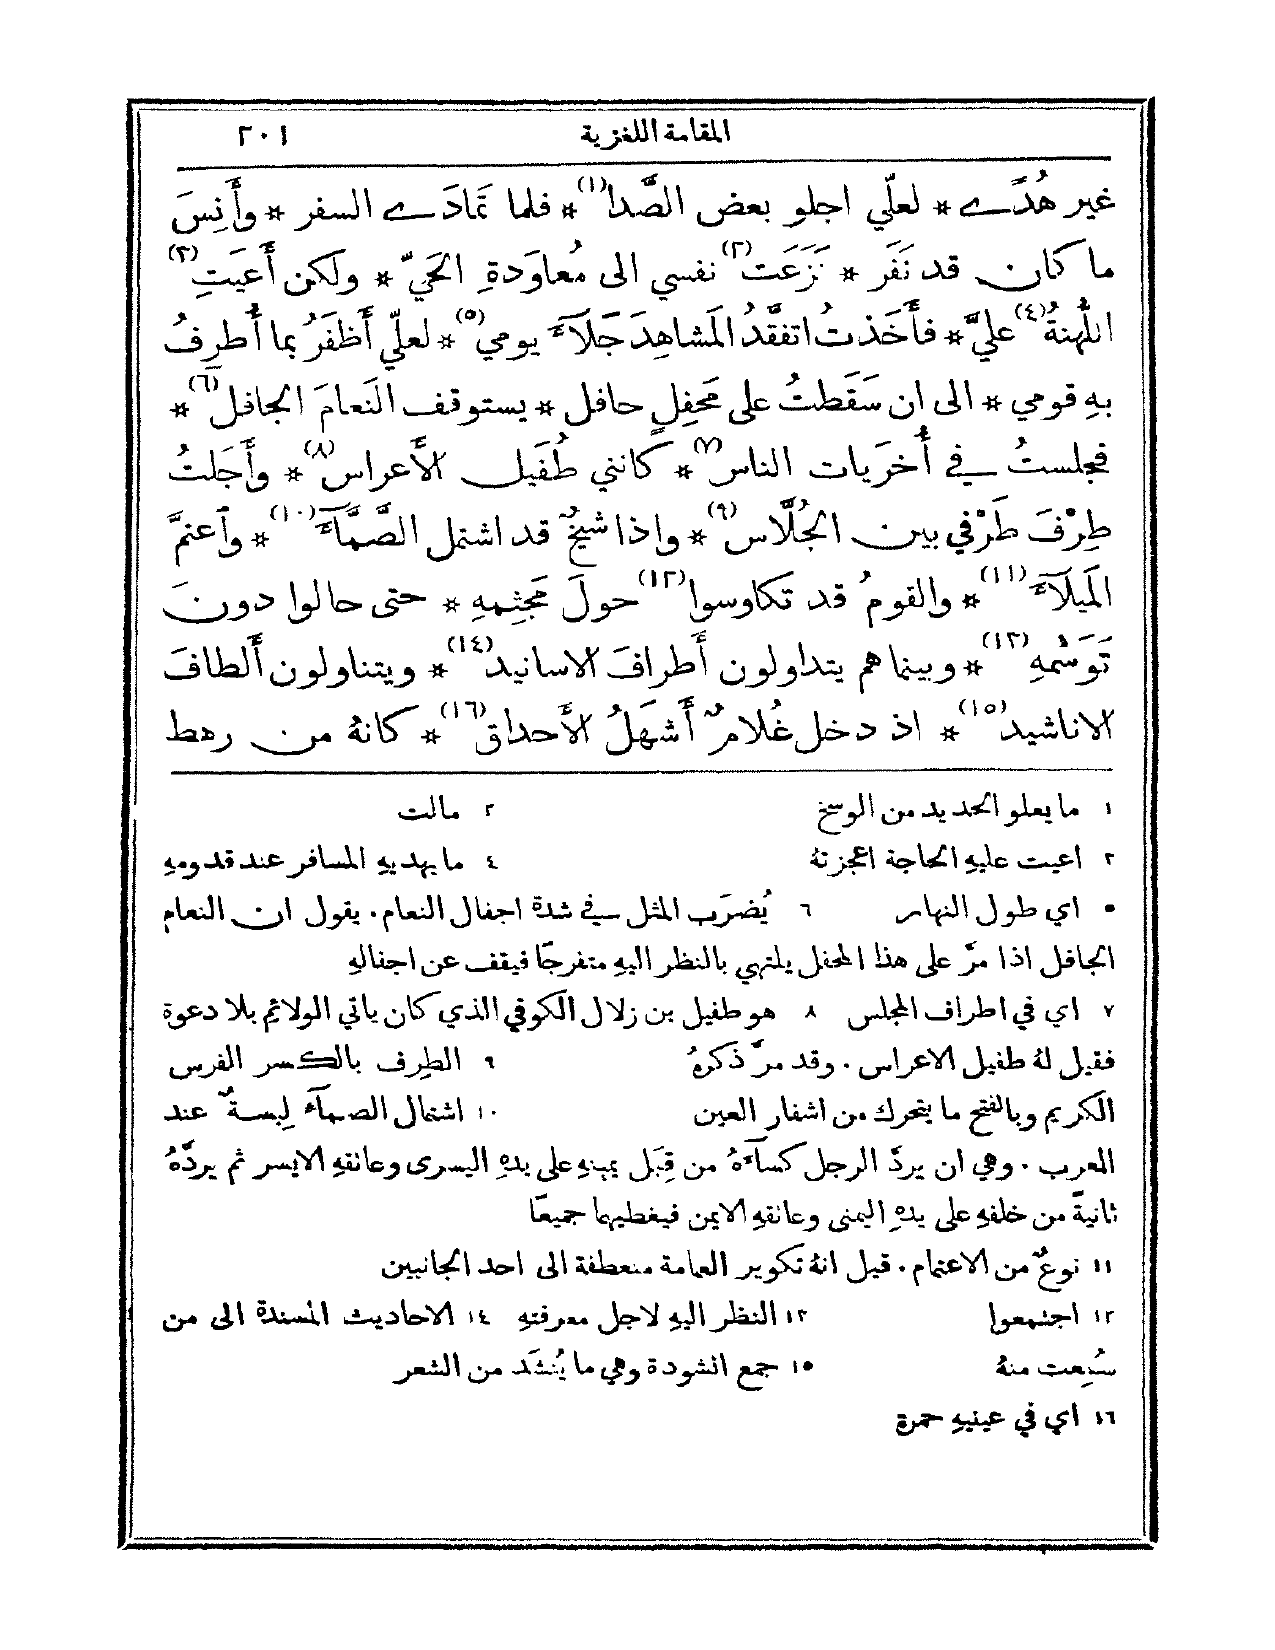 المقامة اللغزية ٢٠١
غير هُدًى * لعلّي اجلو بعض الصَّدا(١) * فلما تمَادَى السفر * وأَنِسَ
ما كان قد نَفَر * نَزَعَت(٢) نفسي الى مُعاوَدةِ الحَيّ * ولكن أَعيَتِ(٣)
اللُّهنةُ(٤) عليَّ * فأَخَذتُ اتفقَّدُ المَشاهِدَ جَلآءَ يومي(٥) * لعلّي أَظفَرُ بما أُطرِفُ
بهِ قومي * الى ان سَقَطتُ على مَحفِلٍ حافل * يستوقف النَعامَ الجافل(٦) *
فجلستُ في أُخرَيات الناس(٧) * كأَنني طُفَيل الأَعراس(٨) * وأَجَلتُ
طِرْفَ طَرْفي بين الجُلَّاس(٩) * واذا شيخٌ قد اشتمل الصَّمَّآءَ(١٠) * وآعتمَّ
المَيلآءَ(١١) * والقومُ قد تكاوسوا(١٢) حولَ مَجثِمهِ * حتى حالوا دونَ
تَوَسُّمهِ(١٣) * وبينما هم يتداولون أَطرافَ الاسانيد(١٤) * ويتناولون أَلطافَ
الاناشيد(١٥) * اذ دخل غُلامٌ أَشهَلُ الأَحداق(١٦) * كانهُ من رهط
١ ما يعلو الحديد من الوسخ ٢ مالت
٣ اعيت عليهِ الحاجة اعجزتهُ ٤ ما يهديهِ المسافر عند قدومهِ
٥ اي طول النهار ٦ يُضرَب المثل في شدة اجفال النعام. يقول ان النعام
الجافل اذا مرَّ على هذا المحفل يلتهي بالنظر اليهِ متفرجًا فيقف عن اجفالهِ
٧ اي في اطراف المجلس ٨ هو طفيل بن زلال الكوفي الذي كان ياتي الولائم بلا دعوة
فقيل لهُ طفيل الاعراس. وقد مرَّ ذكرهُ ٩ الطِرف بالكسر الفرس
الكريم وبالفتح ما يتحرك من اشفار العين ١٠ اشتمال الصمآء لِبسةٌ عند
العرب. وهي ان يردَّ الرجل كسآءَهُ من قِبَل يمينهِ على يدهِ اليسرى وعاتقهِ الايسر ثم يردَّهُ
ثانيةً من خلفهِ على يدهِ اليمنى وعاتقهِ الايمن فيغطيهما جميعًا
١١ نوعٌ من الاعتمام. قيل انهُ تكوير العمامة منعطفة الى احد الجانبين
١٢ اجتمعوا ١٣ النظر اليهِ لاجل معرفتهِ ١٤ الاحاديث المسندة الى من
سُمِعت منهُ ١٥ جمع انشودة وهي ما يُنشَد من الشعر
١٦ اي في عينيهِ حمرة